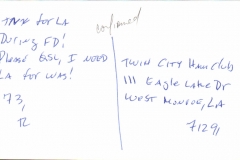 TNX for LA
During FD!
Please QSL, I NEED
LA for WAS!
73,
confirmed
Twin City Ham Club
111 Eagle Lake Dr
West Monroe, LA
71291